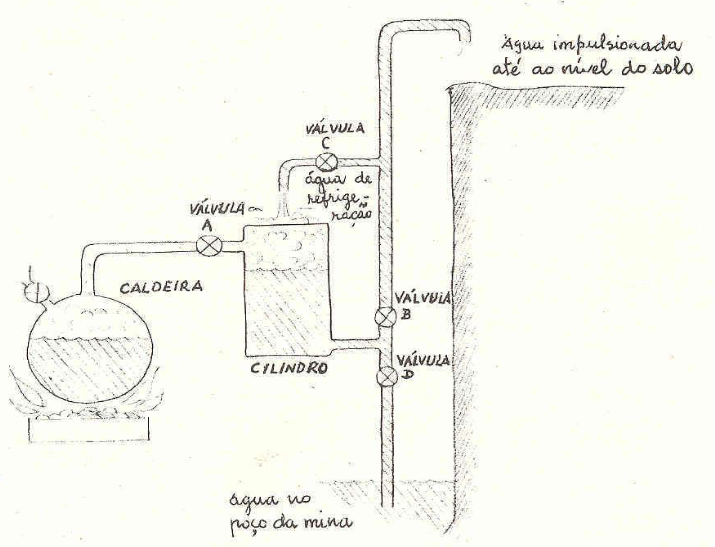 Água impulsionada
até ao nível do solo
VÁLVULA
C
água de
refrige-
ração
VÁLVULA
A
CALDEIRA
VÁLVULA
B
VÁLVULA
D
CILINDRO
água no
poço da mina